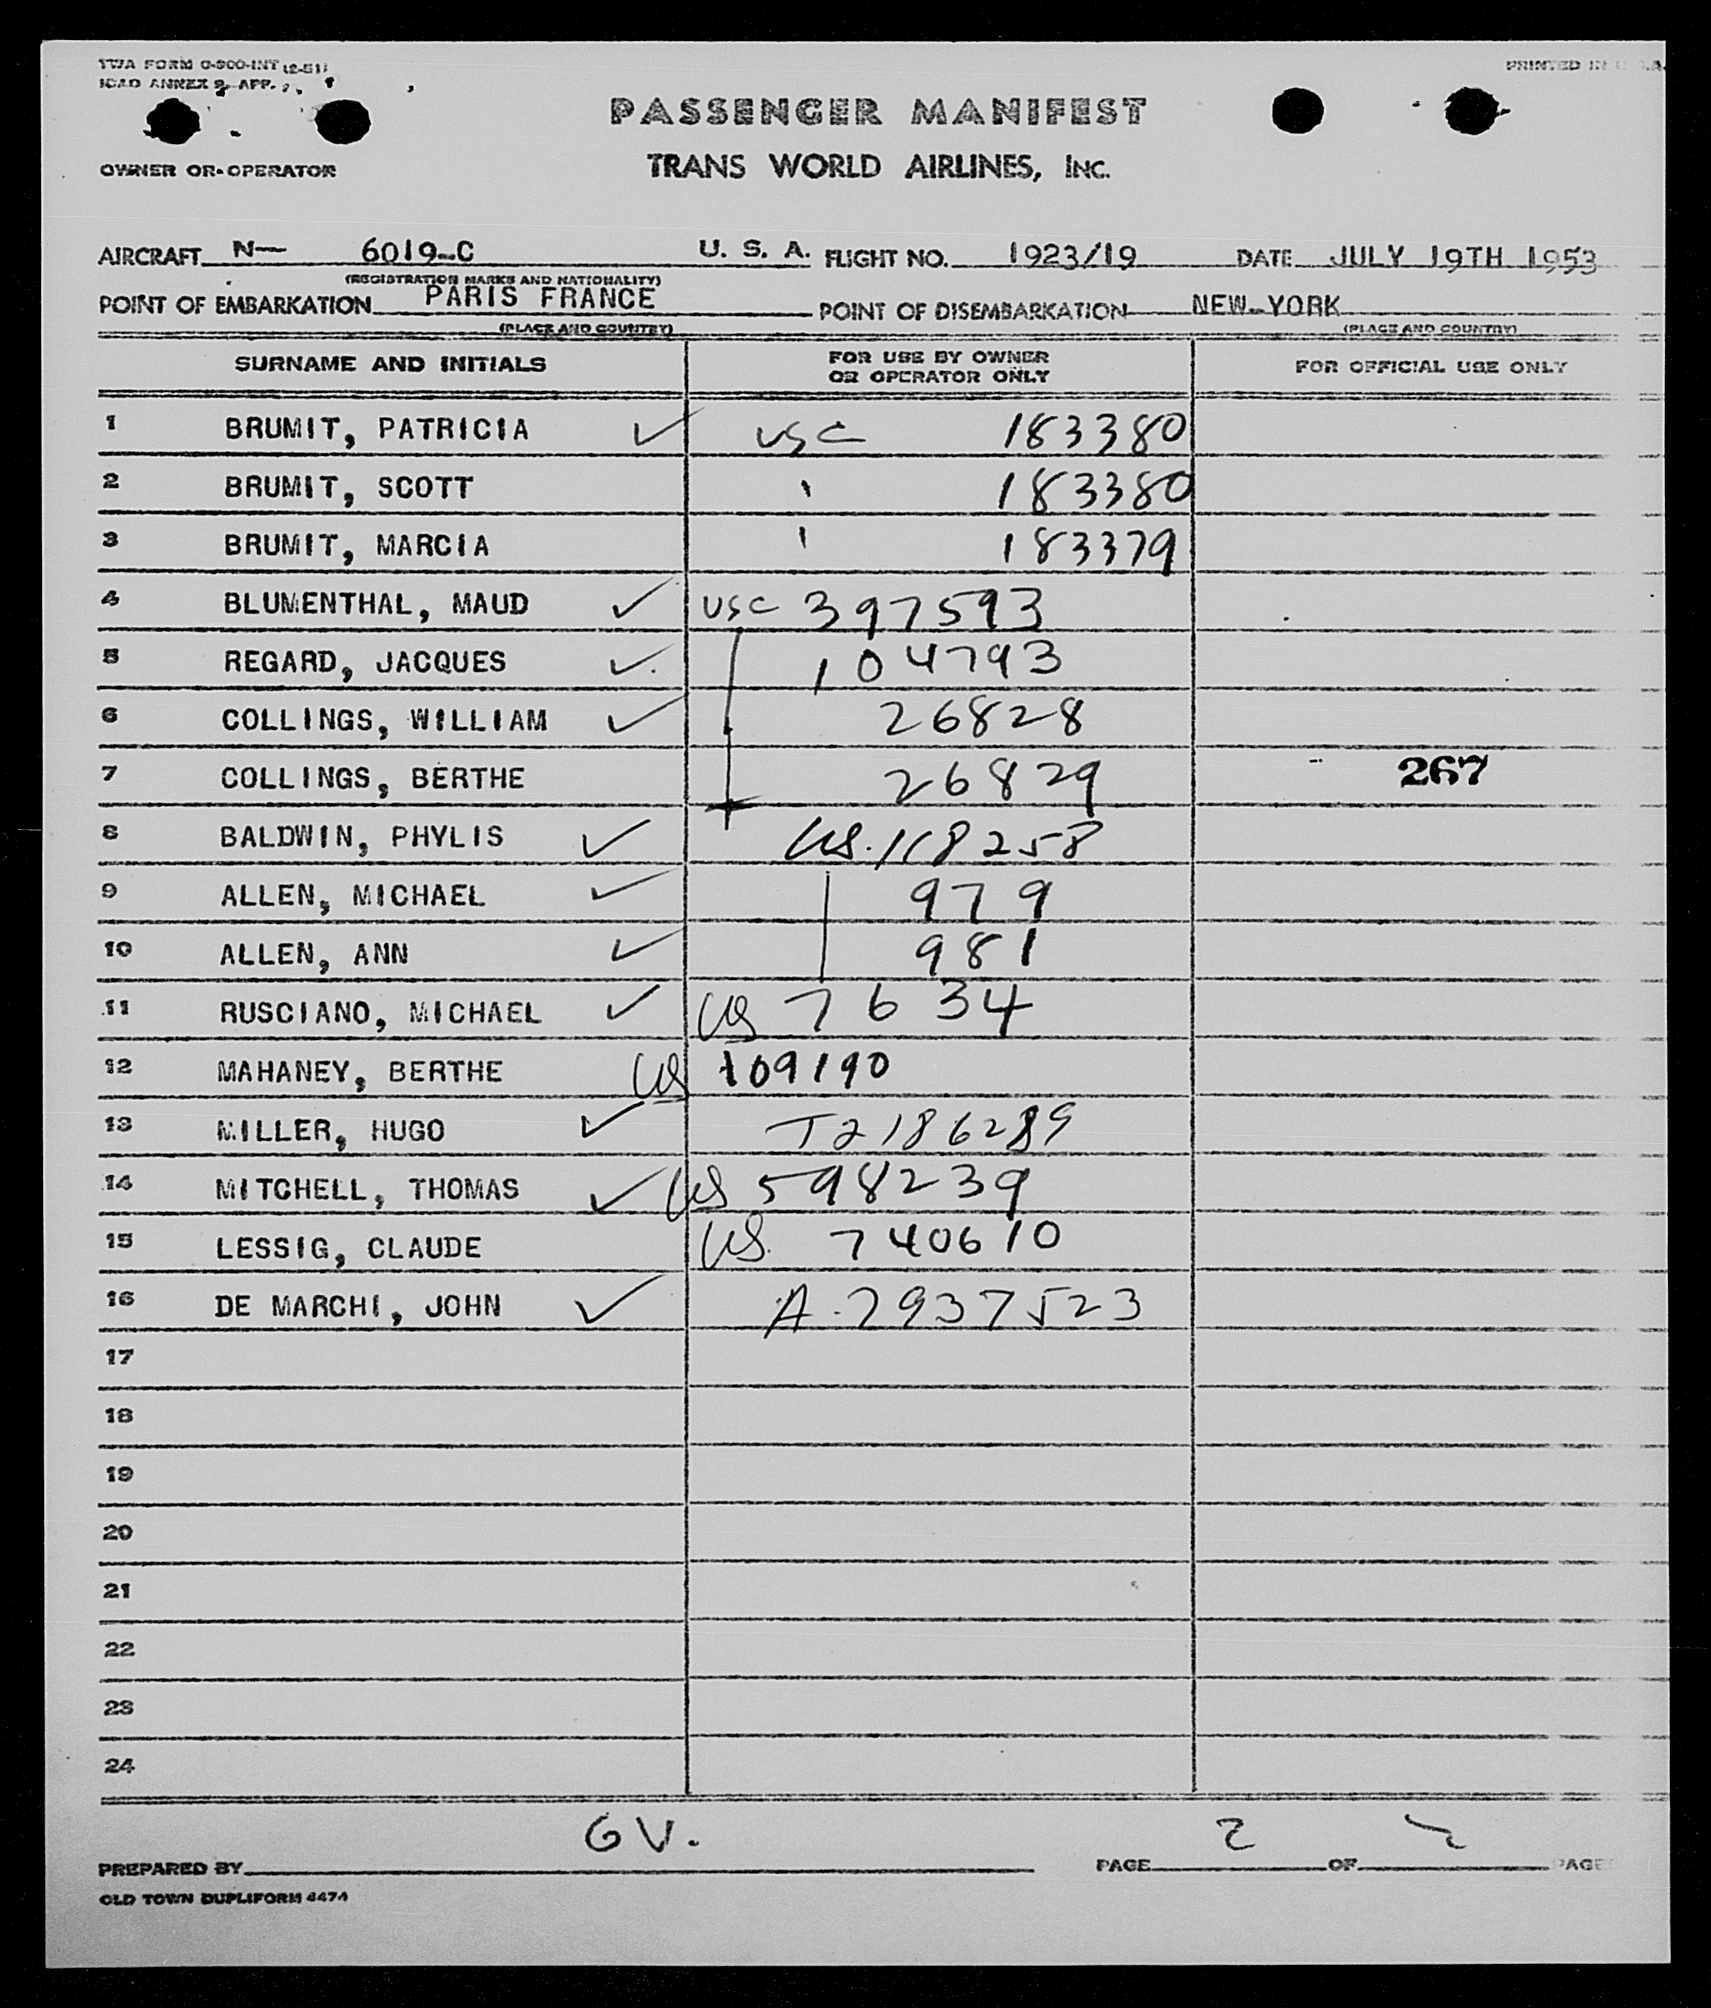 TWA FORM O-900-INT (2-51)
ICAO ANNEX 9, APP.
PRINTED IN U.S.A.
PASSENGER MANIFEST
OWNER OR OPERATOR
TRANS WORLD AIRLINES, INC.
AIRCRAFT N— 6019-C U. S. A. FLIGHT NO. 1923/19 DATE JULY 19TH 1953
(REGISTRATION MARKS AND NATIONALITY)
POINT OF EMBARKATION PARIS FRANCE POINT OF DISEMBARKATION NEW-YORK
(PLACE AND COUNTRY) (PLACE AND COUNTRY)
SURNAME AND INITIALS FOR USE BY OWNER OR OPERATOR ONLY FOR OFFICIAL USE ONLY
1 BRUMIT, PATRICIA ✓ USC 183380
2 BRUMIT, SCOTT ' 183380
3 BRUMIT, MARCIA ' 183379
4 BLUMENTHAL, MAUD ✓ USC 397593
5 REGARD, JACQUES ✓ 104793
6 COLLINGS, WILLIAM ✓ 26828
7 COLLINGS, BERTHE 26829 267
8 BALDWIN, PHYLIS ✓ US. 118258
9 ALLEN, MICHAEL ✓ 979
10 ALLEN, ANN ✓ 981
11 RUSCIANO, MICHAEL ✓ US 7634
12 MAHANEY, BERTHE US 109190
13 MILLER, HUGO ✓ T2186289
14 MITCHELL, THOMAS ✓ US 598239
15 LESSIG, CLAUDE US. 740610
16 DE MARCHI, JOHN ✓ A-7937523
17
18
19
20
21
22
23
24
PREPARED BY GV. PAGE 2 OF 2 PAGE
OLD TOWN DUPLIFORM 4474